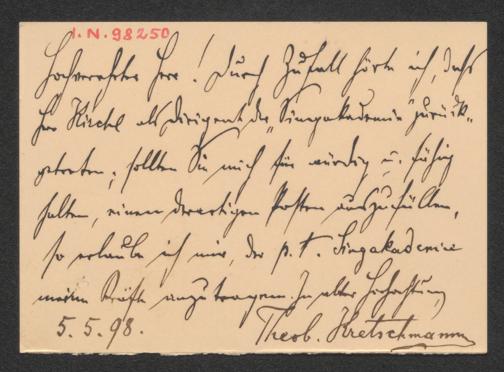 I.N. 98250
Hochverehrter Herr! Durch Zufall hörte ich, daß
Herr Kirchl als Dirigent der "Singakademie" zurück-
getreten; sollten Sie mich für würdig u. fähig
halten, einen derartigen Posten auszufüllen,
so erlaube ich mir, der p. t. Singakademie
meine Kräfte anzutragen. In aller Hochachtung
5.5.98. Theob. Kretschmann